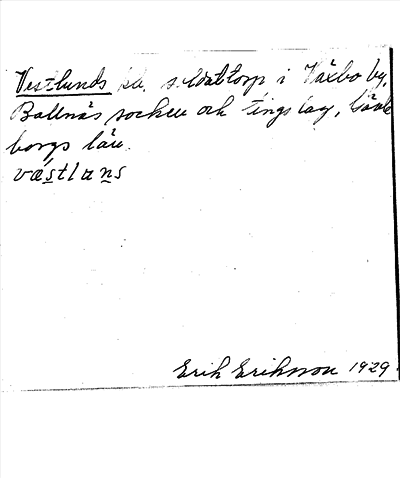 Vestlunds soldattorp i Växbo by,
Bollnäs socken och tingslag, Gävle
borgs län.
væstlans
Erik Eriksson 1929.